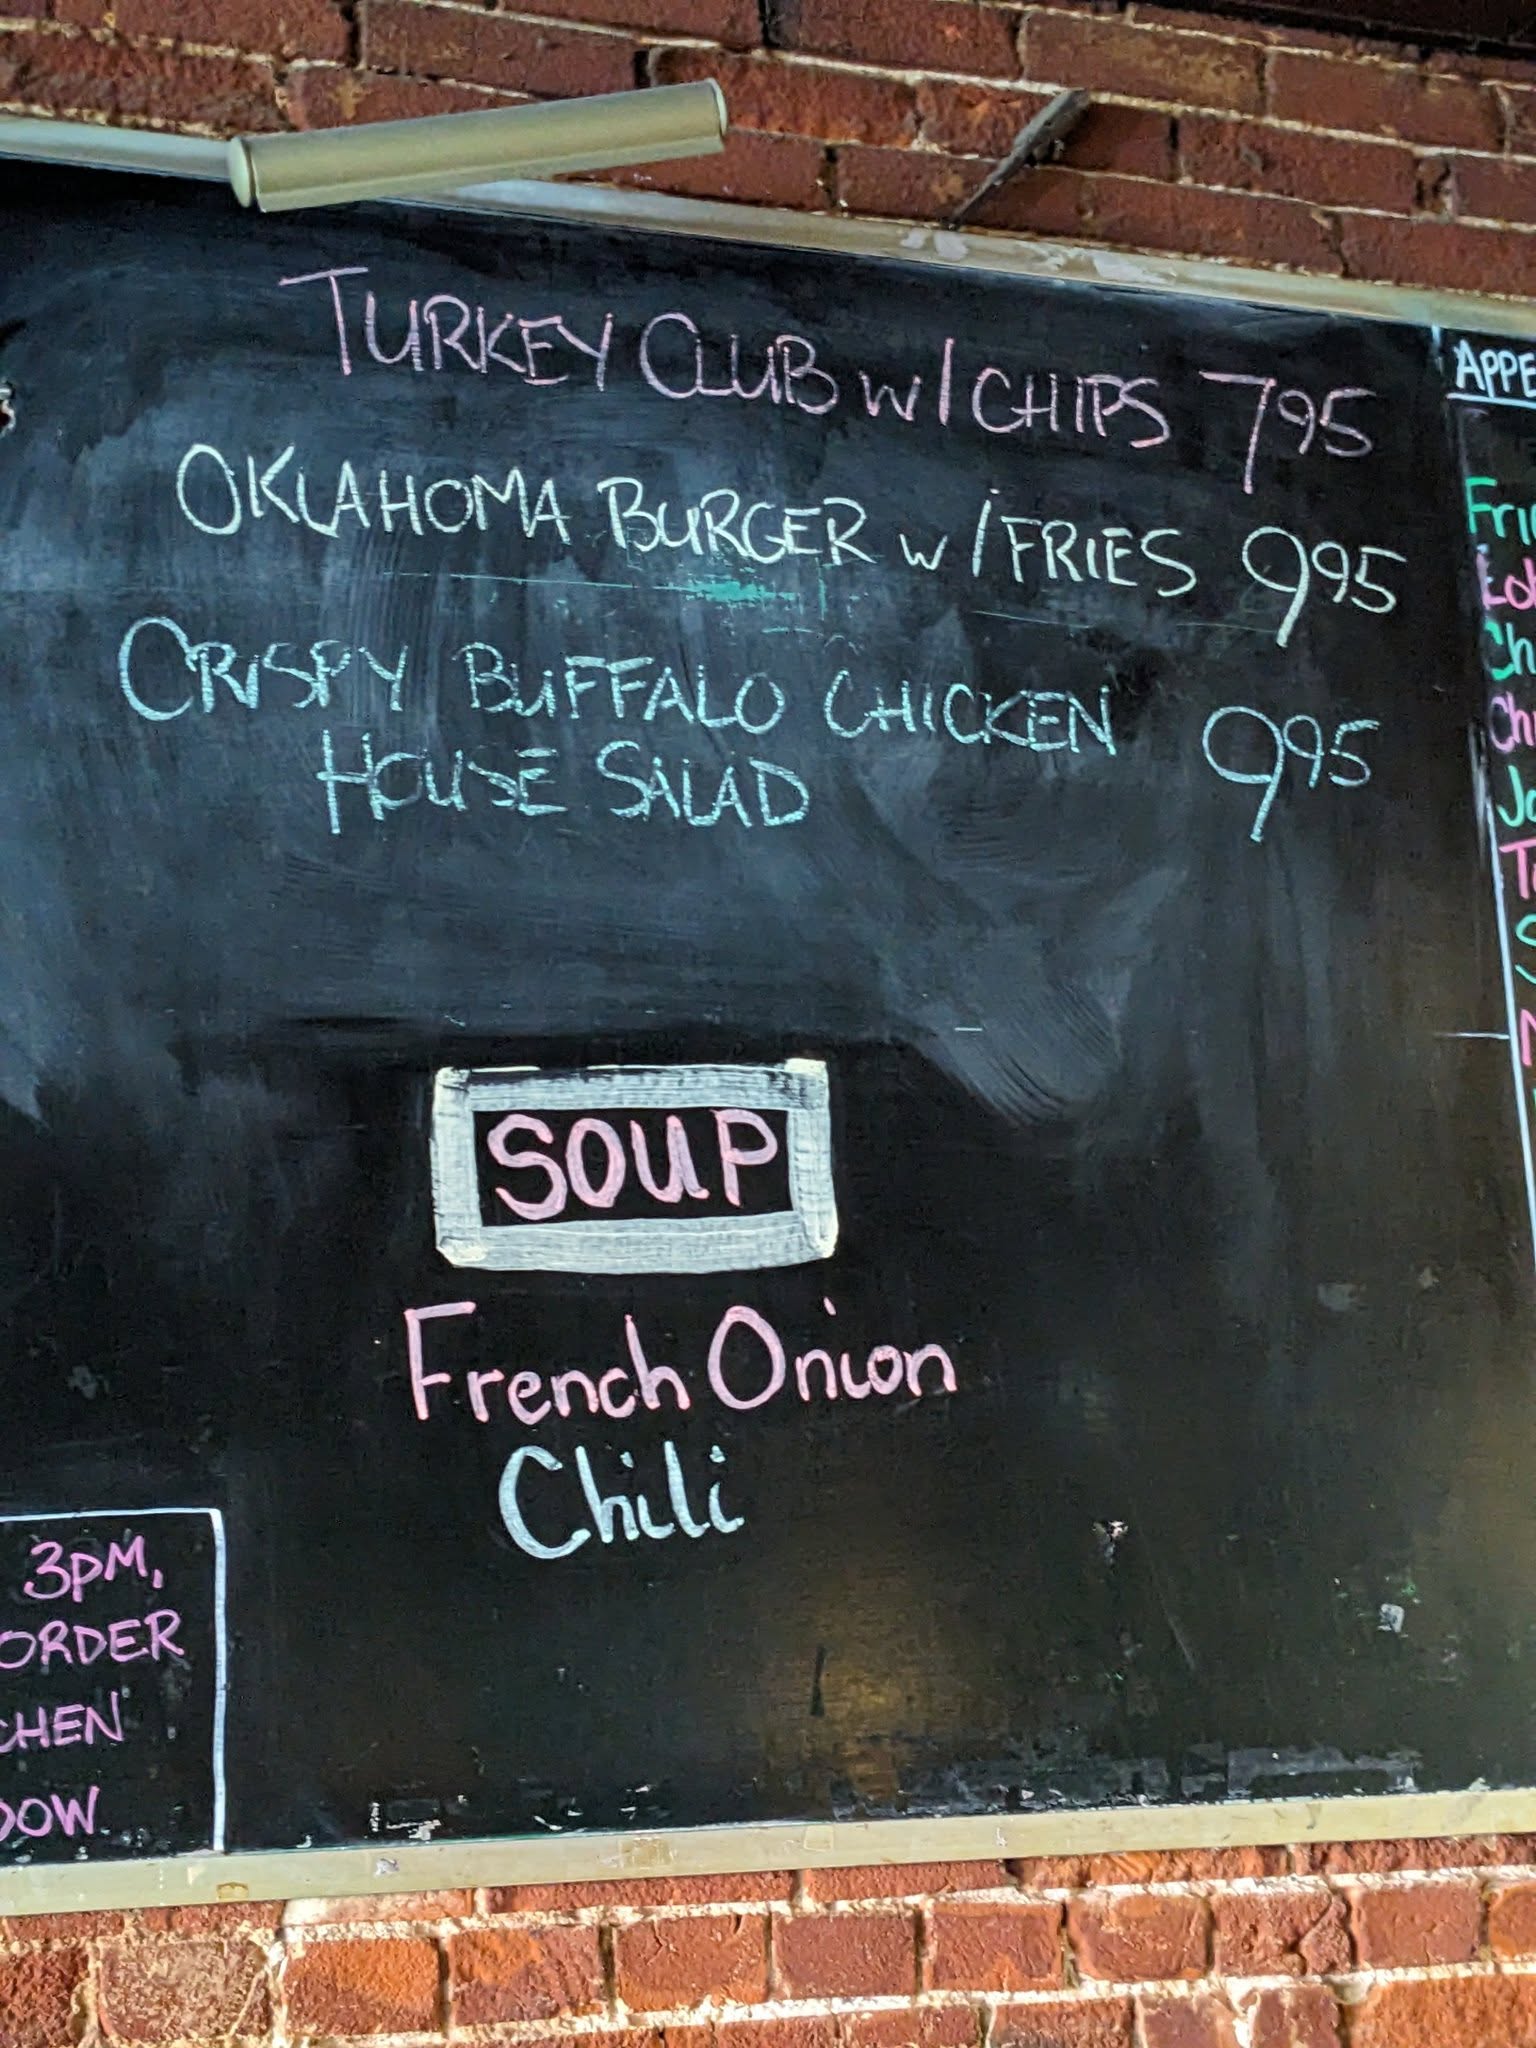 TURKEY CLUB w/ CHIPS 795
OKLAHOMA BURGER w/ FRIES 995
CRISPY BUFFALO CHICKEN 995
HOUSE SALAD
SOUP
French Onion
Chili
3PM,
ORDER
CHEN
DOW
APPE
Fri
Ch
Ch